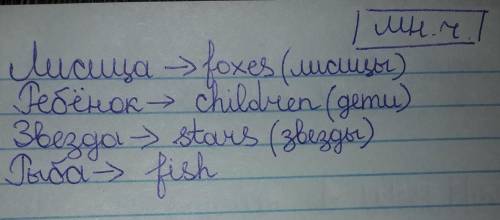 мн.ч.
Лисица → foxes (лисицы)
Ребёнок → children (дети)
Звезда → stars (звезды)
Рыба → fish